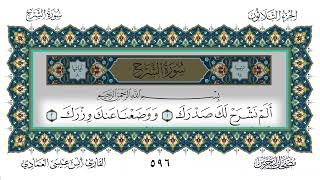 الجزء الثلاثون
سورة الشرح
سُورَةُ الشَّرْحِ
بِسْمِ اللَّهِ الرَّحْمَٰنِ الرَّحِيمِ
أَلَمْ نَشْرَحْ لَكَ صَدْرَكَ ١ وَوَضَعْنَا عَنكَ وِزْرَكَ ٢
٥٩٦
القارئ أنس عيسى العمادي